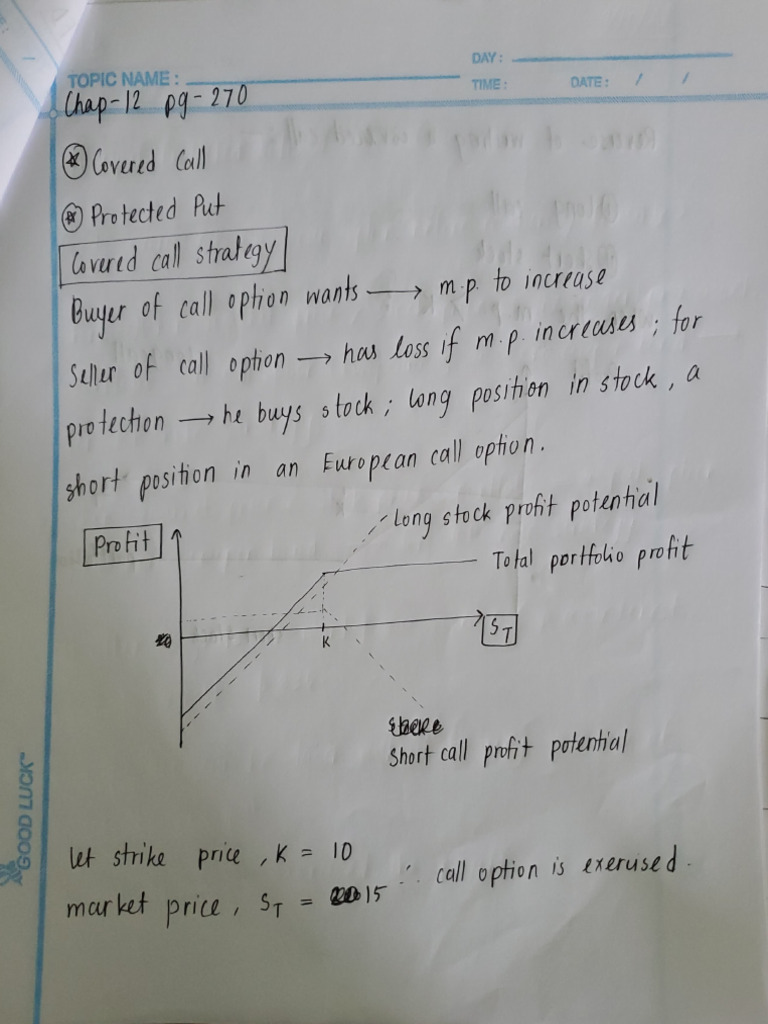 DAY:
TOPIC NAME:
TIME: DATE: / /
Chap-12 pg-270
Covered Call
Protected Put
Covered call strategy
Buyer of call option wants → m.p. to increase
Seller of call option → has loss if m.p. increases; for
protection → he buys stock; long position in stock, a
short position in an European call option.
Long stock profit potential
Profit
Total portfolio profit
S_T
K
Short call profit potential
GOOD LUCK™
let strike price, K = 10
market price, S_T = 15 ∴ call option is exercised.